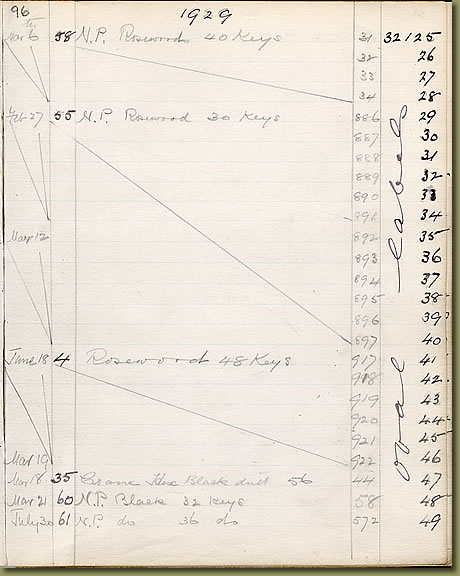 96 1929
Mar 6th 58 N.P. Rosewood 40 Keys 31 32125
32 26
33 27
34 28
Feb 27 55 N.P. Rosewood 30 Keys 886 29
887 30
888 31
889 32
890 33
891 34
Mar 12 892 35
893 36
894 37
895 38
896 39
897 40
June 18 4 Rosewood 48 Keys 917 41
918 42
919 43
920 44
921 45
Mar 19 922 46
Mar 18 35 Crane Hex Black 56 44 47
Mar 21 60 N.P. Black 32 Keys 58 48
July 30 61 N.P. do 36 do 572 49
oval label